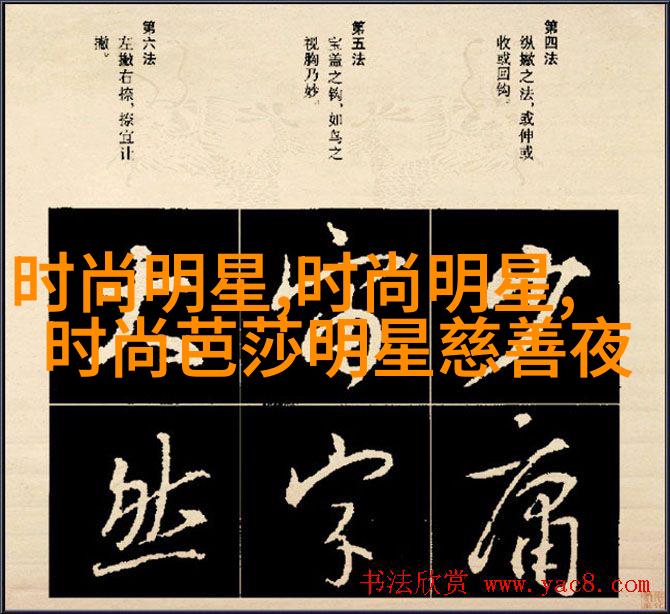 第四法
纵撇之法，或伸或
收或回钩。
第五法
宝盖之钩，如鸟之
视胸乃妙。
第六法
左撇右捺，捺宜让
撇。
时尚明星,时尚明星,
时尚芭莎明星慈善夜
庸
字
然
书法欣赏 www.yac8.com